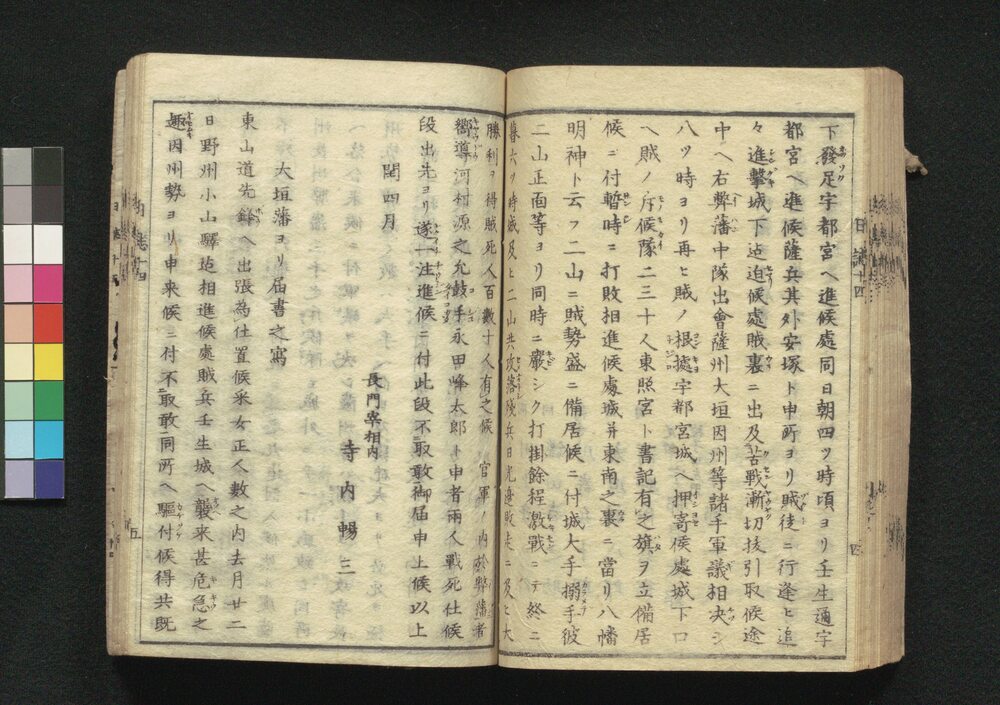 下發足宇都宮ヘ進候處同日朝四ツ時頃ヨリ壬生通宇
都宮ヘ進候薩兵其外安塚ト申所ヨリ賊徒ニ行逢ヒ追
々進擊城下迠迫候處賊裏ニ出及苦戰漸切拔引取候途
中ヘ右弊藩中隊出會薩州大垣因州等諸手軍議相决シ
八ツ時ヨリ再ヒ賊ノ根據宇都宮城ヘ押寄候處城下口
ヘ賊ノ斥候隊二三十人東照宮ト書記有之旗ヲ立備居
候ニ付暫時ニ打敗相進候處城并東南之裏ニ當リ八幡
明神ト云フ二山ニ賊勢盛ニ備居候ニ付城大手搦手彼
二山正面等ヨリ同時ニ嚴シク打掛餘程激戰ニテ終ニ
暮六ツ時城及ヒ二山共攻落殘兵日光邊敗走ニ及ヒ大
勝利ヲ得賊死人百數十人有之候　官軍ノ内於弊藩者
嚮導河村源之允鼓手永田峰太郎ト申者兩人戰死仕候
段出先ヨリ遂一注進候ニ付此段不取敢御届申上候以上
閏四月　長門宰相内
寺内暢三
大垣藩ヨリ届書之寫
東山道先鋒ヘ出張為仕置候釆女正人數之内去月廿二
日野州小山驛迠相進候處賊兵壬生城ヘ襲来甚危急之
趣因州勢ヨリ申来候ニ付不取敢同所ヘ驅付候得共既
日誌十四
四
五